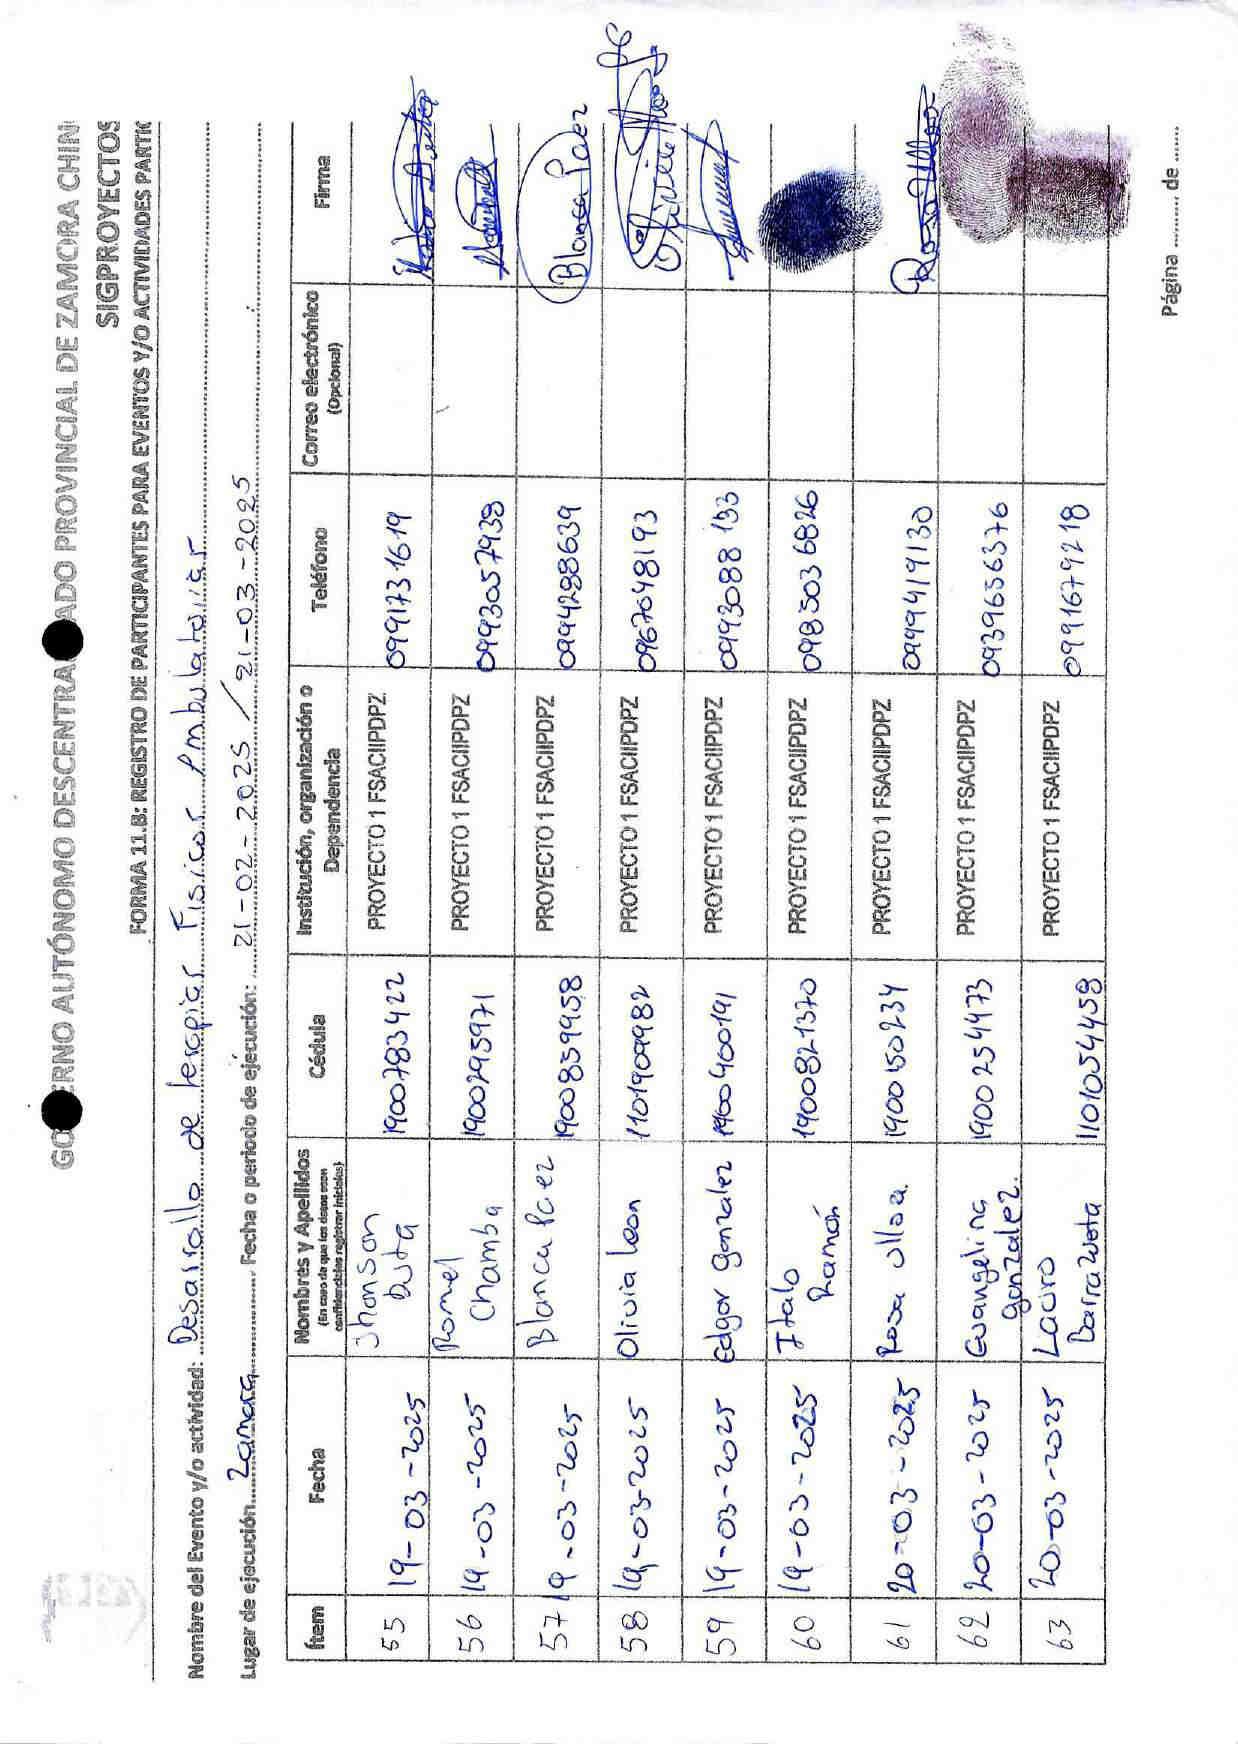 GO ERNO AUTÓNOMO DESCENTRA ADO PROVINCIAL DE ZAMORA CHIN
SIGPROYECTOS
FORMA 11.B: REGISTRO DE PARTICIPANTES PARA EVENTOS Y/O ACTIVIDADES PARTIC
Nombre del Evento y/o actividad: Desarrollo de terapias Fisicas Ambulatorias
Lugar de ejecución Zamora Fecha o periodo de ejecución: 21-02-2025 / 21-03-2025
Ítem Fecha Nombres y Apellidos (En caso de que los datos sean confidenciales registrar iniciales) Cédula Institución, organización o Dependencia Teléfono Correo electrónico (Opcional) Firma
55 19-03-2025 Jhonson Duta 1900783422 PROYECTO 1 FSACIIPDPZ 0991731619
56 19-03-2025 Romel Chamba 1900295971 PROYECTO 1 FSACIIPDPZ 0993057938
57 19-03-2025 Blanca Paez 1900859958 PROYECTO 1 FSACIIPDPZ 0994288639 Blanca Paez
58 19-03-2025 Olivia Leon 1101909982 PROYECTO 1 FSACIIPDPZ 0967048193
59 19-03-2025 Edgar Gonzalez 1900400191 PROYECTO 1 FSACIIPDPZ 0993088133
60 19-03-2025 Italo Ramón 1900821370 PROYECTO 1 FSACIIPDPZ 0985036826
61 20-03-2025 Rosa Ulloa 1900150234 PROYECTO 1 FSACIIPDPZ 0999419130
62 20-03-2025 Evangelina Gonzalez. 1900254973 PROYECTO 1 FSACIIPDPZ 0939656376
63 20-03-2025 Lauro Barrazueta 1101054458 PROYECTO 1 FSACIIPDPZ 0991679218
Página ......... de ......